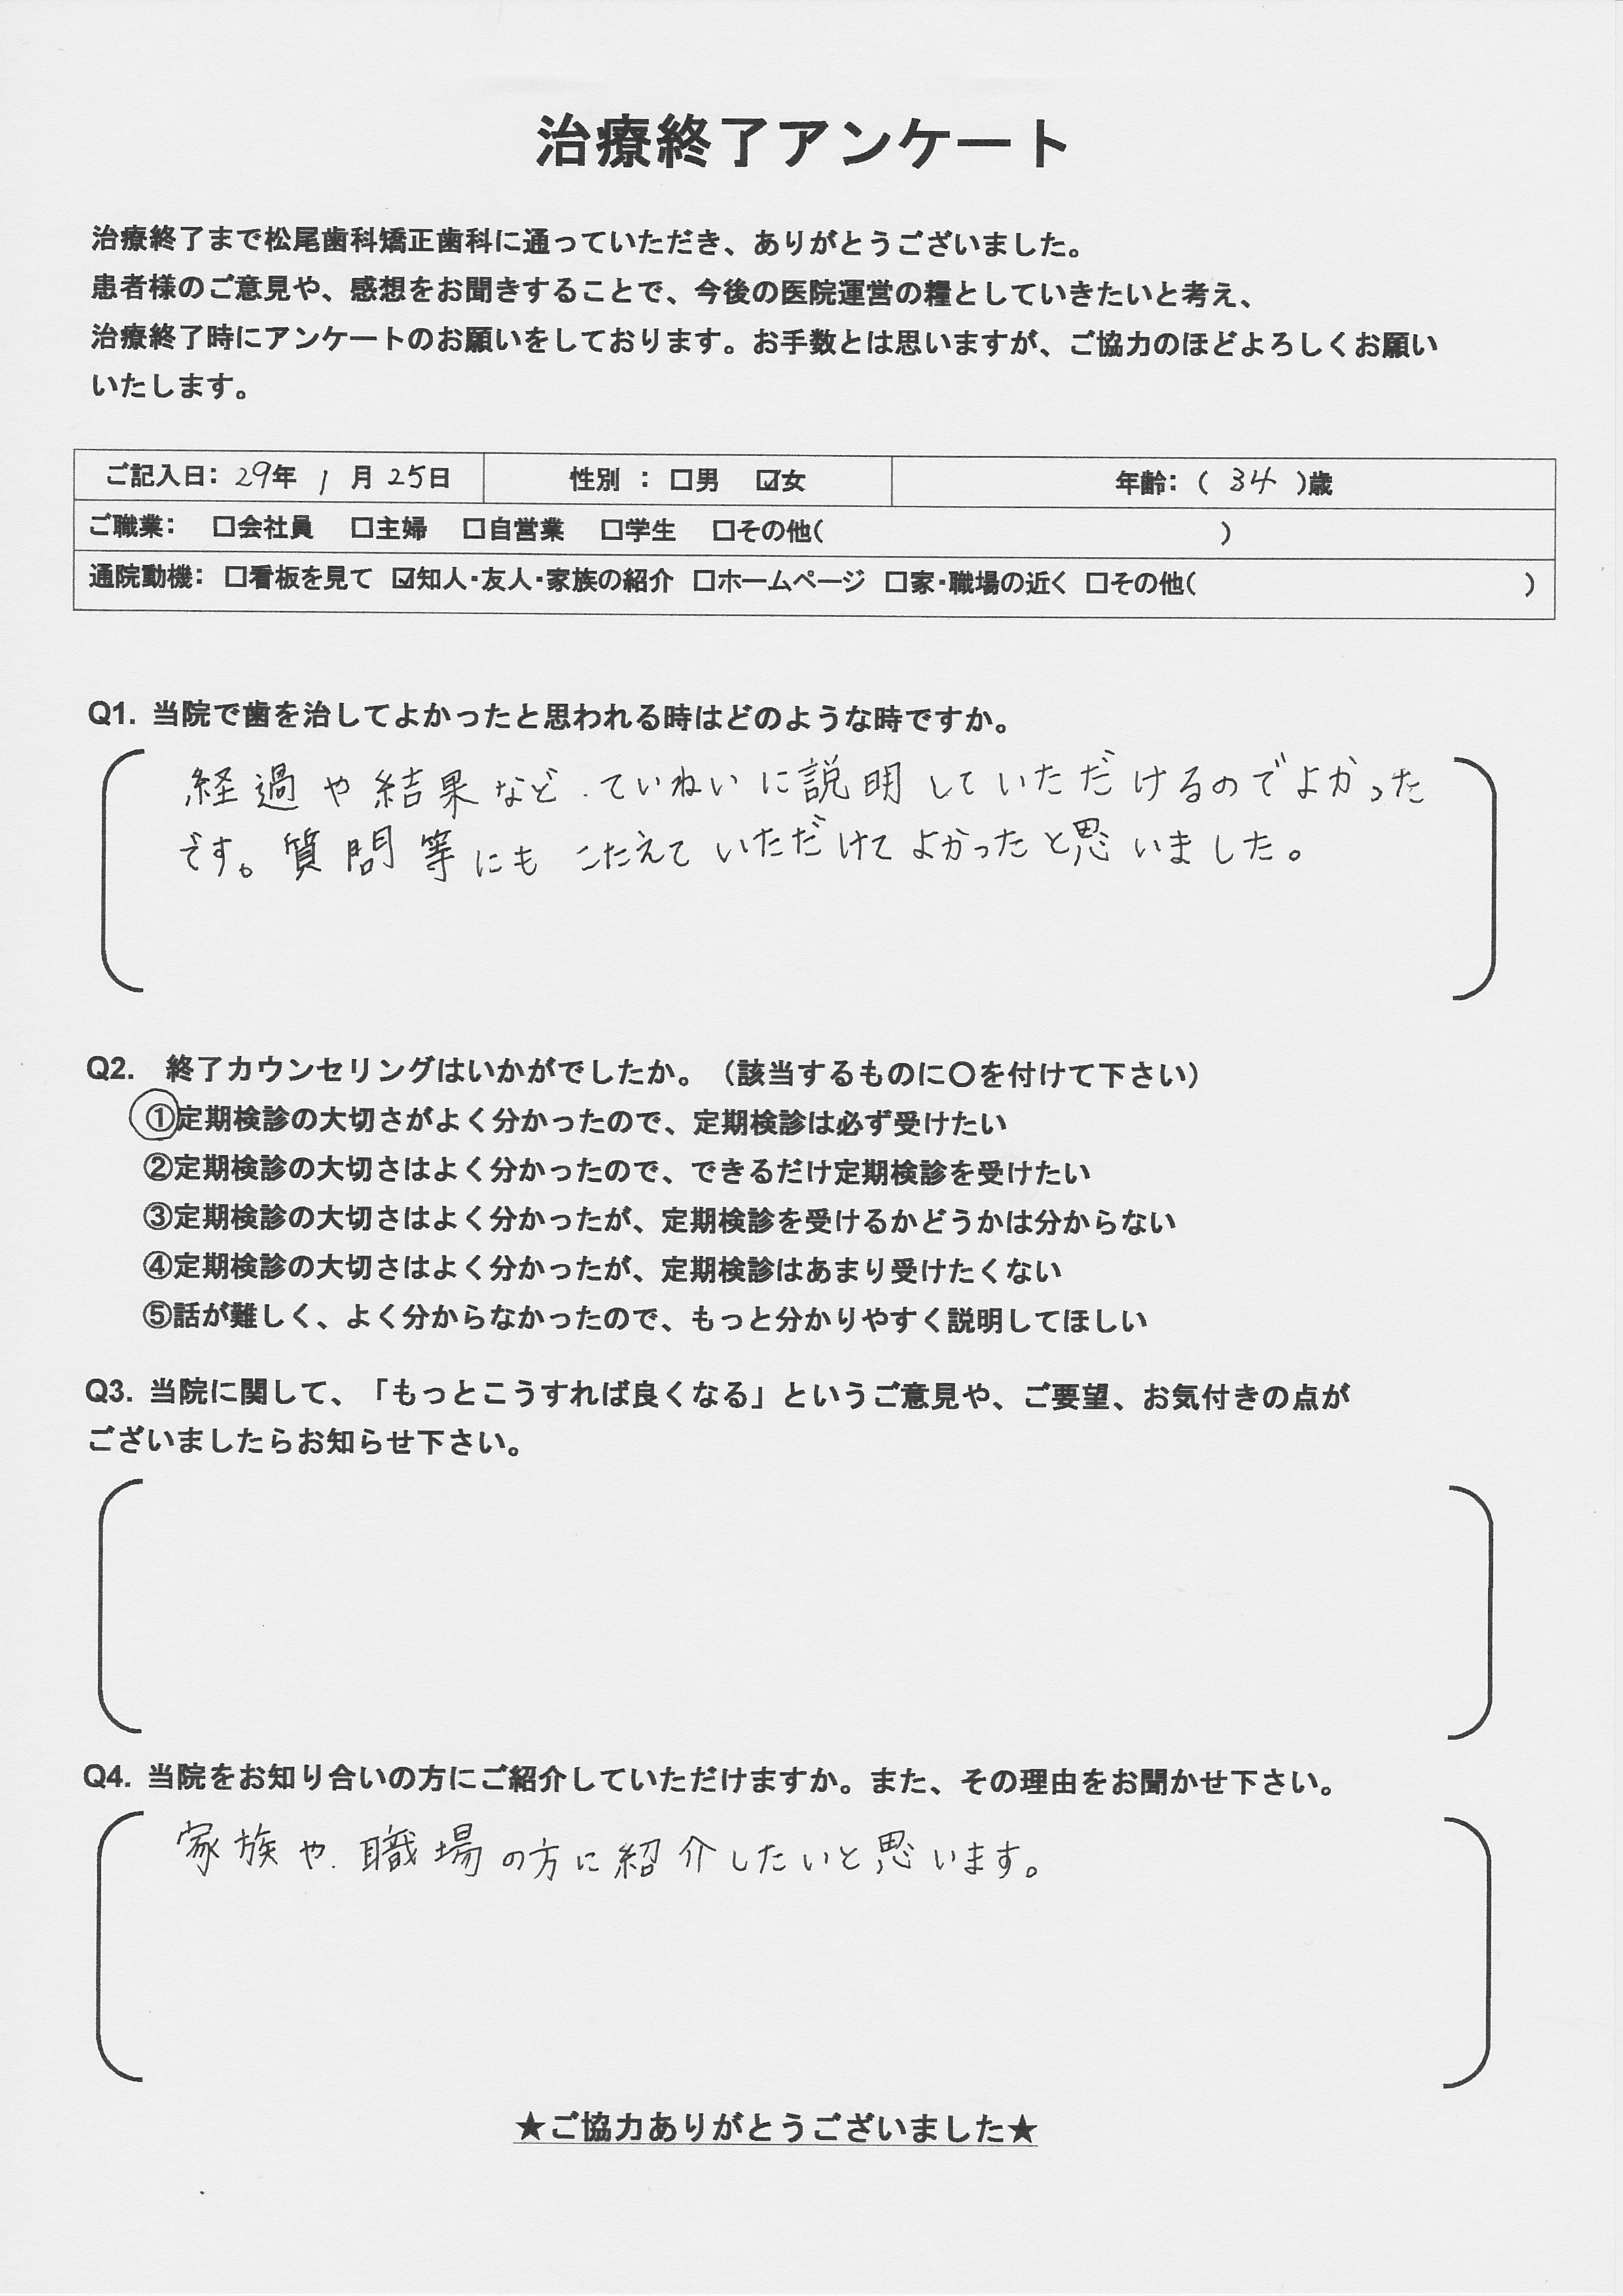 治療終了アンケート
治療終了まで松尾歯科矯正歯科に通っていただき、ありがとうございました。
患者様のご意見や、感想をお聞きすることで、今後の医院運営の糧としていきたいと考え、
治療終了時にアンケートのお願いをしております。お手数とは思いますが、ご協力のほどよろしくお願い
いたします。
ご記入日：29年 1 月 25日 性別 ：□男 ☑女 年齢：（ 34 ）歳
ご職業： □会社員 □主婦 □自営業 □学生 □その他（ ）
通院動機： □看板を見て ☑知人・友人・家族の紹介 □ホームページ □家・職場の近く □その他（ ）
Q1. 当院で歯を治してよかったと思われる時はどのような時ですか。
経過や結果など、ていねいに説明していただけるのでよかった
です。質問等にも こたえていただけてよかったと思いました。
Q2. 終了カウンセリングはいかがでしたか。（該当するものに〇を付けて下さい）
①定期検診の大切さがよく分かったので、定期検診は必ず受けたい
②定期検診の大切さはよく分かったので、できるだけ定期検診を受けたい
③定期検診の大切さはよく分かったが、定期検診を受けるかどうかは分からない
④定期検診の大切さはよく分かったが、定期検診はあまり受けたくない
⑤話が難しく、よく分からなかったので、もっと分かりやすく説明してほしい
Q3. 当院に関して、「もっとこうすれば良くなる」というご意見や、ご要望、お気付きの点が
ございましたらお知らせ下さい。
Q4. 当院をお知り合いの方にご紹介していただけますか。また、その理由をお聞かせ下さい。
家族や、職場の方に紹介したいと思います。
★ご協力ありがとうございました★